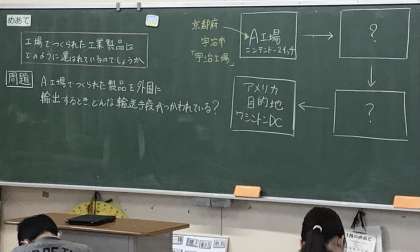 めあて
工場でつくられた工業製品は
どのように運ばれているのでしょうか
問題
A工場でつくられた製品を外国に
輸出するとき、どんな輸送手段がつかわれている？
京都府
宇治市
「宇治工場」
A工場
ニンテンドースイッチ
?
?
アメリカ
目的地
ワシントンDC